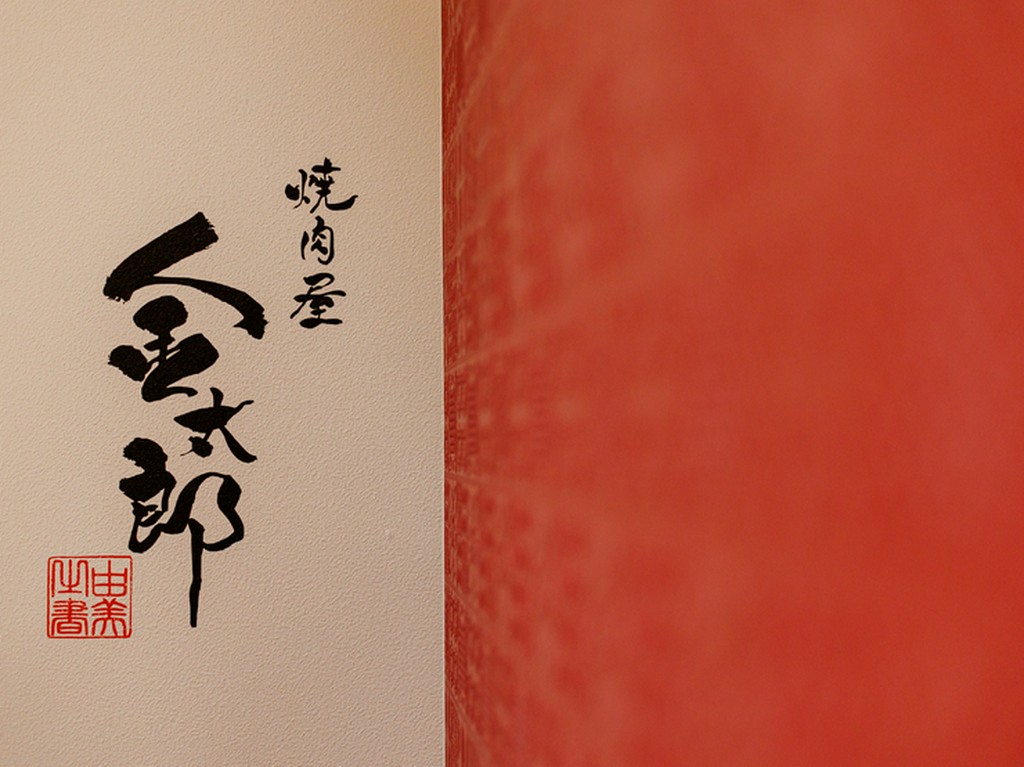 焼肉屋
金太郎
由美
生書